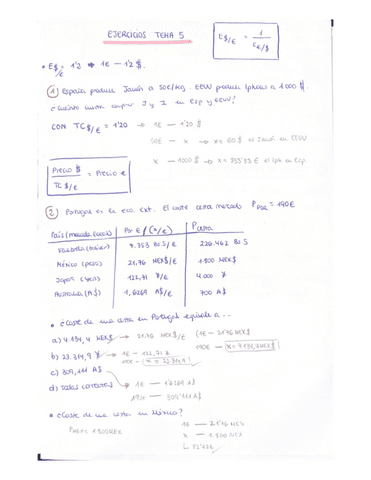 EJERCICIOS TEMA 5
E$/€ = 1 / E€/$
• E$/€ = 1'2 → 1€ — 1'2$.
① España produce Jamón a 50€/kg. EEUU produce Iphone a 1000 $.
¿Cuánto cuesta comprar J y I en Esp y EEUU?
CON TC$/€ = 1'20 → 1€ — 1'20 $
50€ — x → x = 60 $ el Jamón en EEUU
x — 1000 $ → x = 833'33 € el Iph en Esp
Precio $ / TC $/€ = Precio €
② Portugal es la eco. ext. El coste cesta mercado P = 190€
País (moneda local) Por € / (*/€) P cesta
México (peso) 21,76 MEX$/€ 1.800 MEX$
Japón (Yen) 122,71 ¥/€ 4.000 ¥
Australia (A$) 1,6269 A$/€ 700 A$
• ¿Coste de una cesta en Portugal equivale a...
a) 4.134,4 MEX$ → 21.76 MEX$/€ (1€ — 21.76 MEX$
190€ — x =
b) 23.314,9 ¥ → 1€ — 122,71 ¥
190€ — x = 23.314,9
c) 309,111 A$
d) Todas correctas → 1€ — 1'6269 A$
190€ — 309'111 A$
• ¿Coste de una cesta en México?
1800MEX 1€ — 21'76 MEX
x — 1.800 MEX